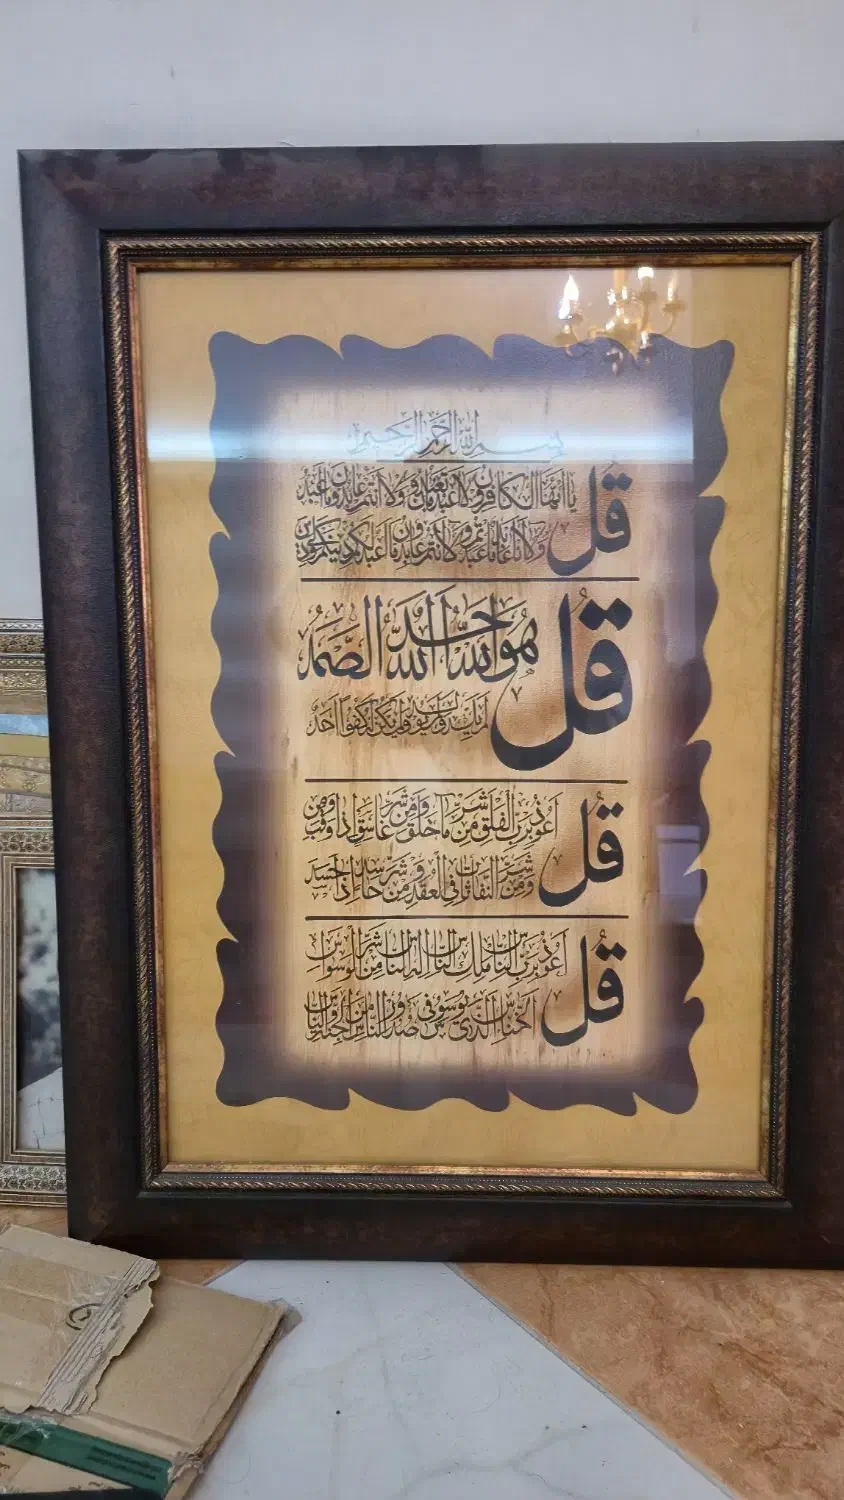 بسم الله الرحمن الرحيم
قل يا أيها الكافرون لا أعبد ما تعبدون ولا أنتم عابدون ما أعبد
ولا أنا عابد ما عبدتم ولا أنتم عابدون ما أعبد لكم دينكم ولي دين
قل هو الله أحد الله الصمد
لم يلد ولم يولد ولم يكن له كفوا أحد
قل أعوذ برب الفلق من شر ما خلق ومن شر غاسق إذا وقب ومن
شر النفاثات في العقد ومن شر حاسد إذا حسد
قل أعوذ برب الناس ملك الناس إله الناس من شر الوسواس
الخناس الذي يوسوس في صدور الناس من الجنة والناس